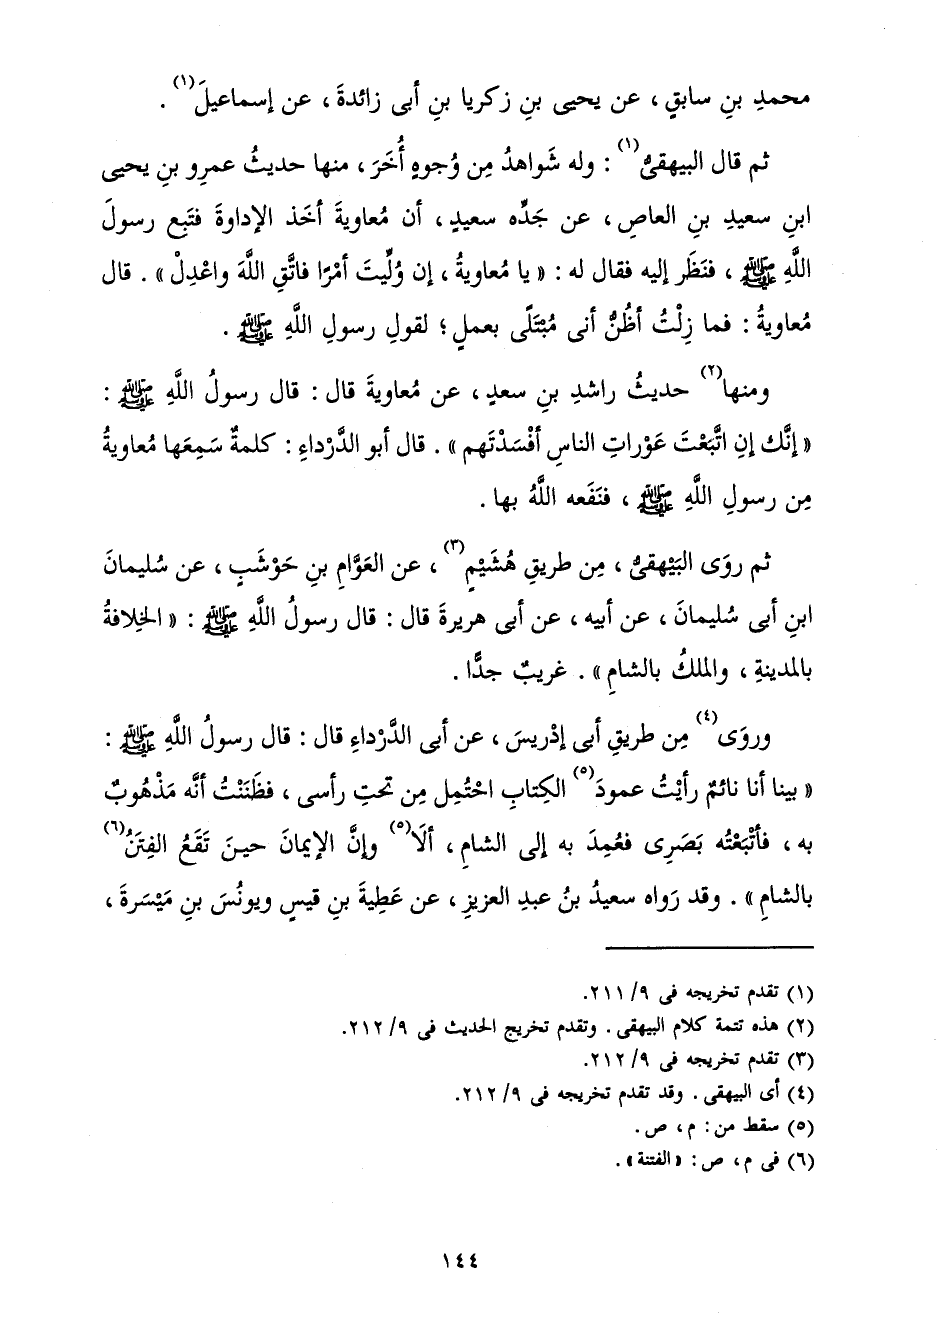 محمدِ بنِ سابقٍ ، عن يحيى بنِ زكريا بنِ أبى زائدةَ ، عن إسماعيلَ(١) .
ثم قال البيهقىُّ(١) : وله شَواهدُ مِن وُجوهٍ أُخَرَ ، منها حديثُ عمرِو بنِ يحيى
ابنِ سعيدِ بنِ العاصِ ، عن جَدِّه سعيدٍ ، أن مُعاويةَ أخَذ الإداوةَ فتَبِع رسولَ
اللَّهِ ﷺ ، فنَظَر إليه فقال له : « يا مُعاويةُ ، إن وُلِّيتَ أمْرًا فاتَّقِ اللَّهَ واعْدِلْ » . قال
مُعاويةُ : فما زِلْتُ أظُنُّ أنى مُبْتَلًى بعملٍ ؛ لقولِ رسولِ اللَّهِ ﷺ .
ومنها(٢) حديثُ راشدِ بنِ سعدٍ ، عن مُعاويةَ قال : قال رسولُ اللَّهِ ﷺ :
« إنَّك إنِ اتَّبَعْتَ عَوْراتِ الناسِ أفْسَدْتَهم » . قال أبو الدَّرْداءِ : كلمةٌ سَمِعَها مُعاويةُ
مِن رسولِ اللَّهِ ﷺ ، فنَفَعه اللَّهُ بها .
ثم روَى البَيْهقىُّ ، مِن طريقِ هُشَيْمٍ(٣) ، عن العَوَّامِ بنِ حَوْشَبٍ ، عن سُليمانَ
ابنِ أبى سُليمانَ ، عن أبيه ، عن أبى هريرةَ قال : قال رسولُ اللَّهِ ﷺ : « الخِلافةُ
بالمدينةِ ، والملكُ بالشامِ » . غريبٌ جدًّا .
وروَى(٤) مِن طريقِ أبى إدْريسَ ، عن أبى الدَّرْداءِ قال : قال رسولُ اللَّهِ ﷺ :
« بينا أنا نائمٌ رأيْتُ عمودَ(٥) الكِتابِ احْتُمِل مِن تحتِ رأسى ، فظَنَنْتُ أنَّه مَذْهُوبٌ
به ، فأتْبَعْتُه بَصَرِى فعُمِدَ به إلى الشامِ ، ألَا(٥) وإنَّ الإيمانَ حينَ تَقَعُ الفِتَنُ(٦)
بالشامِ » . وقد رَواه سعيدُ بنُ عبدِ العزيزِ ، عن عَطِيةَ بنِ قيسٍ ويونُسَ بنِ مَيْسَرةَ ،
(١) تقدم تخريجه فى ٢١١/٩.
(٢) هذه تتمة كلام البيهقى . وتقدم تخريج الحديث فى ٢١٢/٩.
(٣) تقدم تخريجه فى ٢١٢/٩.
(٤) أى البيهقى . وقد تقدم تخريجه فى ٢١٢/٩.
(٥) سقط من : م ، ص .
(٦) فى م ، ص : « الفتنة » .
١٤٤